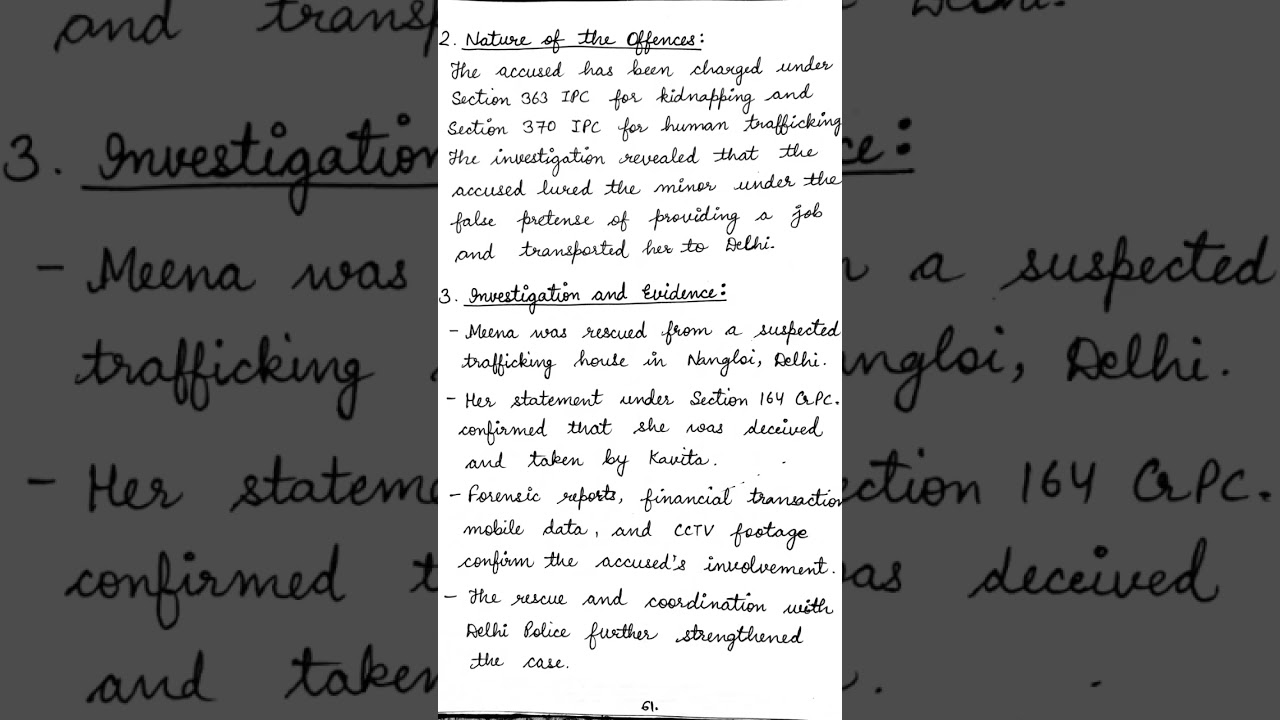 2. Nature of the Offences:
The accused has been charged under
Section 363 IPC for kidnapping and
Section 370 IPC for human trafficking
The investigation revealed that the
accused lured the minor under the
false pretense of providing a job
and transported her to Delhi.
3. Investigation and Evidence:
- Meena was rescued from a suspected
trafficking house in Nangloi, Delhi.
- Her statement under Section 164 CrPC.
confirmed that she was deceived
and taken by Kavita.
- Forensic reports, financial transaction
mobile data, and CCTV footage
confirm the accused's involvement.
- The rescue and coordination with
Delhi Police further strengthened
the case.
61.